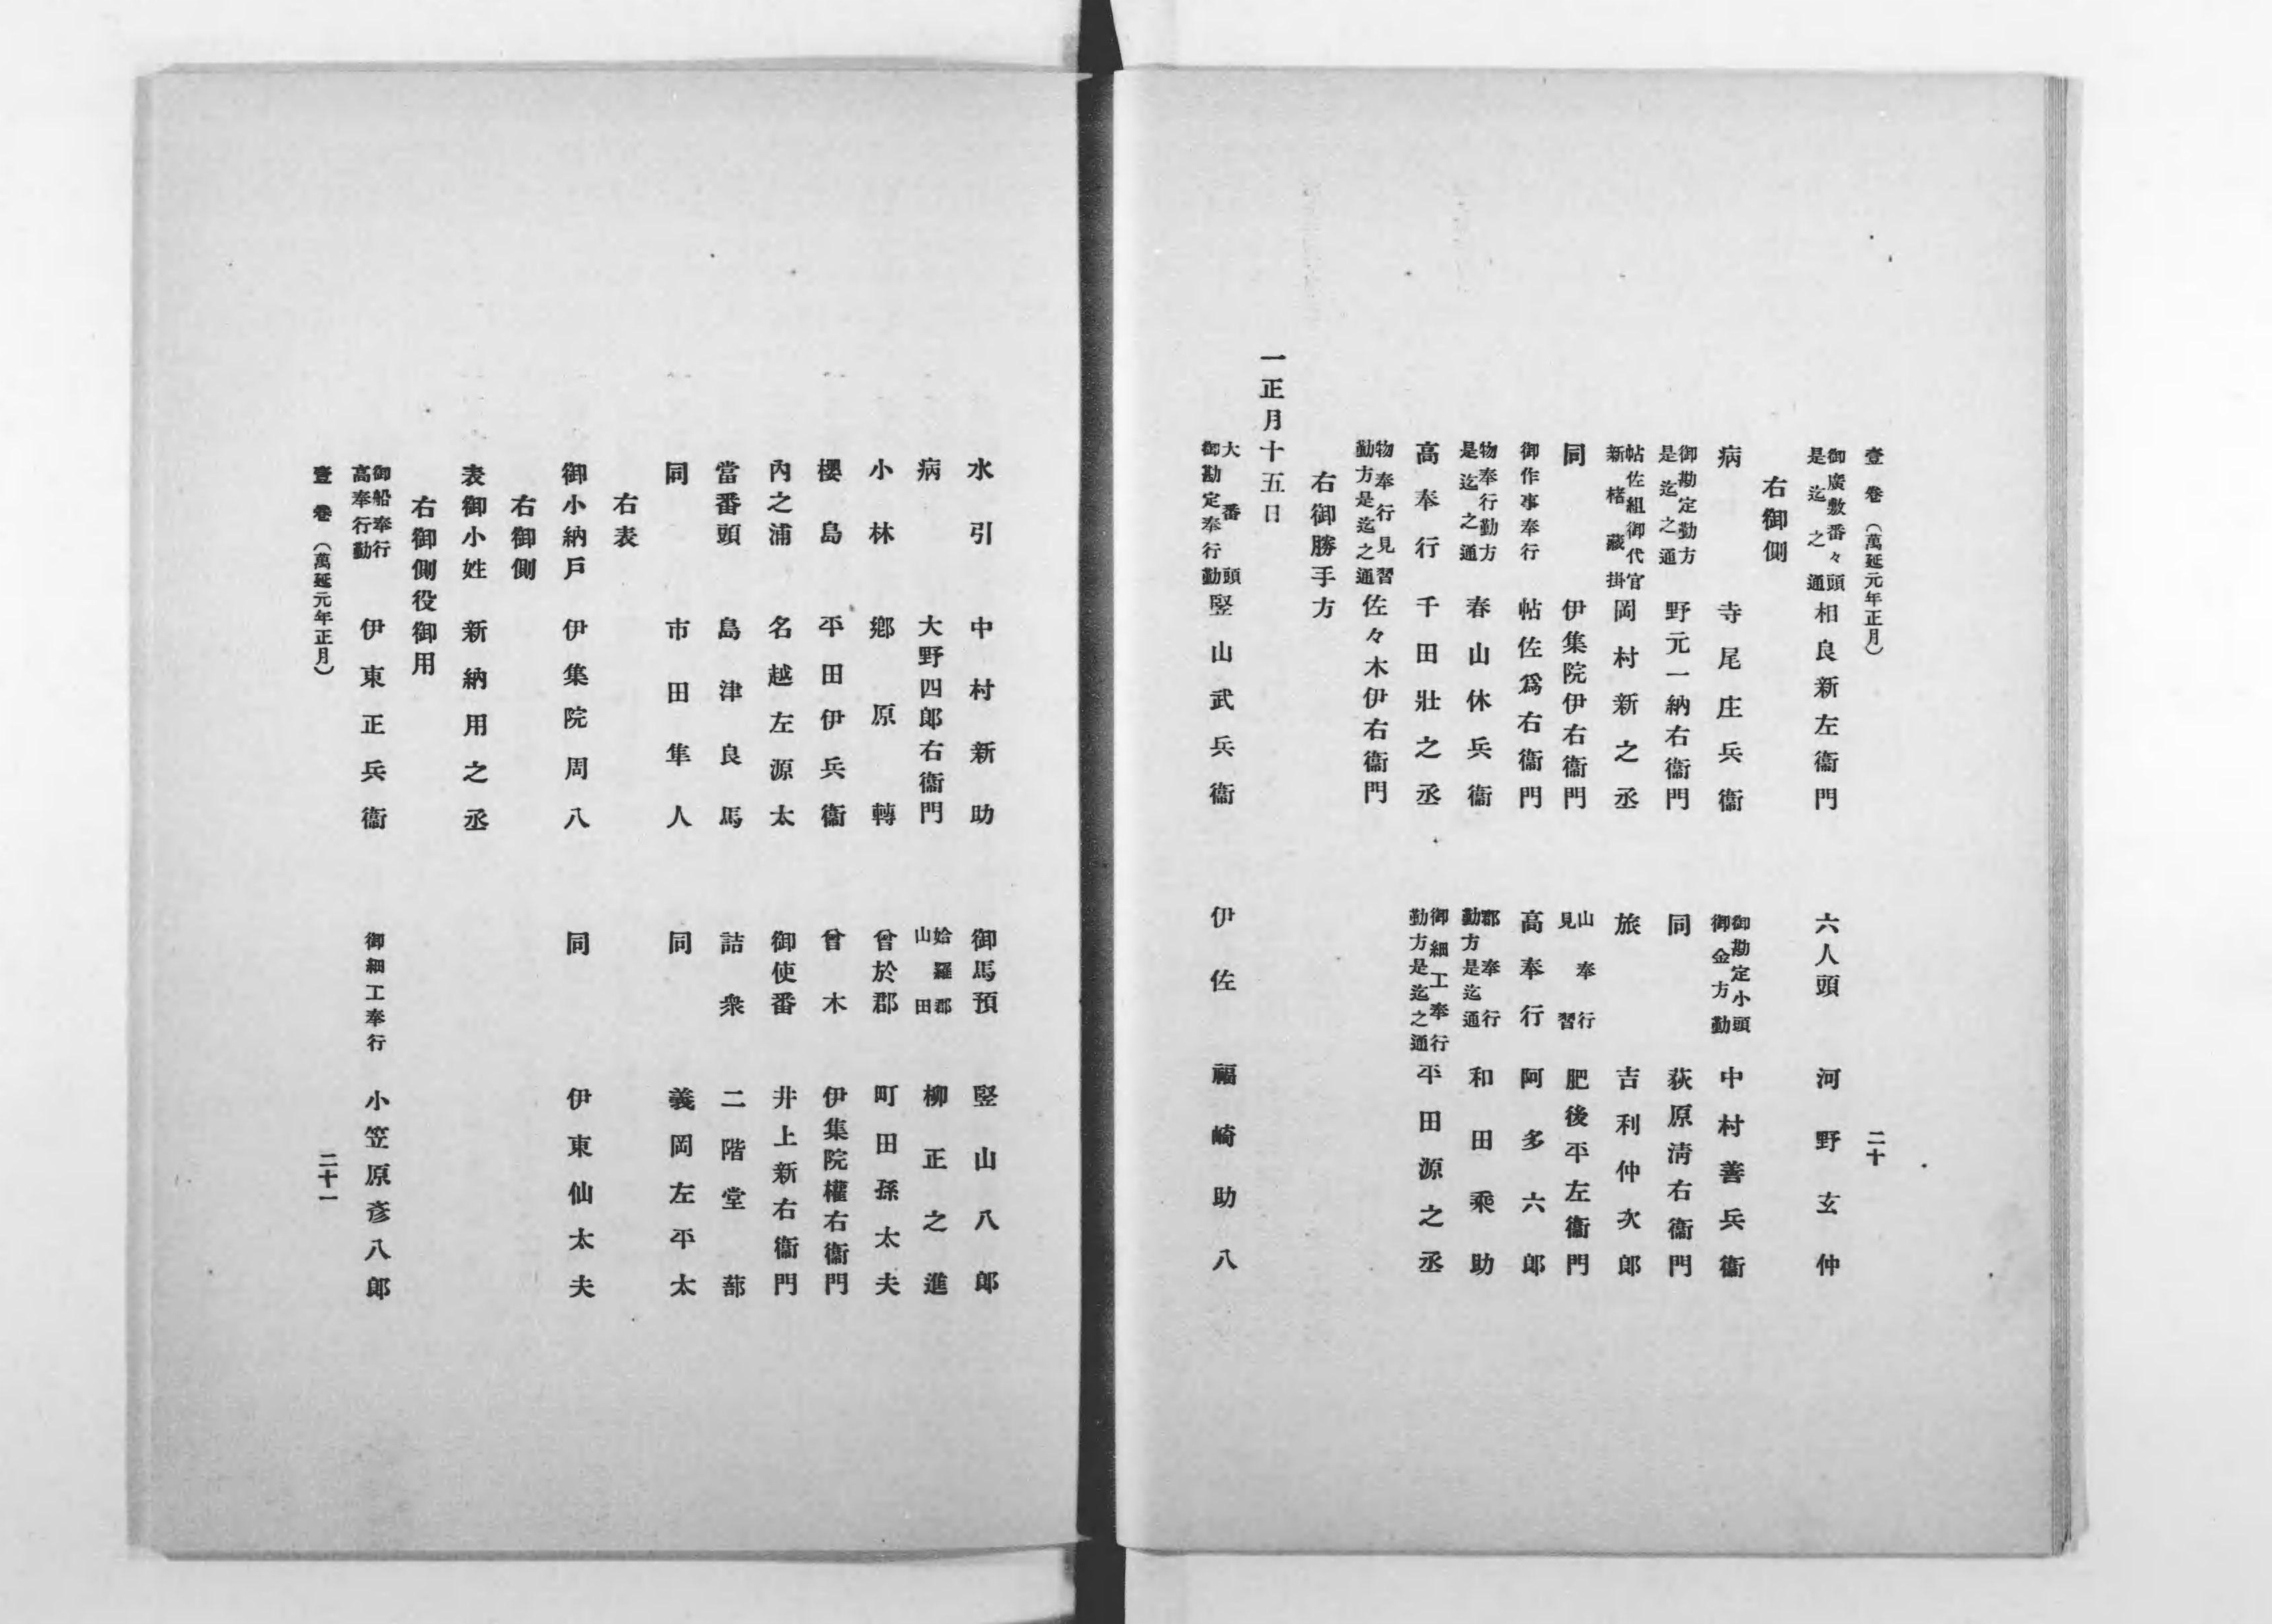 壹卷(萬延元年正月)
二十
御廣敷番々頭
是迄之通
相良新左衞門
六人頭
河野玄仲
右御側
病
寺尾庄兵衞
御勘定小頭
御金方勤
中村善兵衞
御勘定勤方
是迄之通
野元一納右衞門
同
荻原淸右衞門
帖佐組御代官
新楮藏掛
岡村新之丞
旅
吉利仲次郎
同
伊集院伊右衞門
山奉行
見習
肥後平左衞門
御作事奉行
帖佐爲右衞門
高奉行
阿多六郎
物奉行勤方
是迄之通
春山休兵衞
郡奉行
勤方是迄通
和田乘助
高奉行
千田壯之丞
御細工奉行
勤方是迄之通
平田源之丞
物奉行見習
勤方是迄之通
佐々木伊右衞門
右御勝手方
一正月十五日
大番頭
御勘定奉行勤
竪山武兵衞
伊佐
福崎助八
水引
中村新助
御馬預
竪山八郎
病
大野四郎右衞門
姶羅郡
山田
柳正之進
小林
鄕原轉
曾於郡
町田孫太夫
櫻島
平田伊兵衞
曾木
伊集院權右衞門
內之浦
名越左源太
御使番
井上新右衞門
當番頭
島津良馬
詰衆
二階堂蔀
同
市田隼人
同
義岡左平太
右表
御小納戶
伊集院周八
同
伊東仙太夫
右御側
表御小姓
新納用之丞
右御側役御用
御船奉行
高奉行勤
伊東正兵衞
御細工奉行
小笠原彥八郎
壹卷(萬延元年正月)
二十一